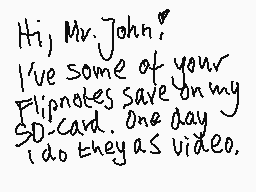 Hi, Mr. John!
I've some of your
Flipnotes save on my
SD-card. One day
i do they as video.